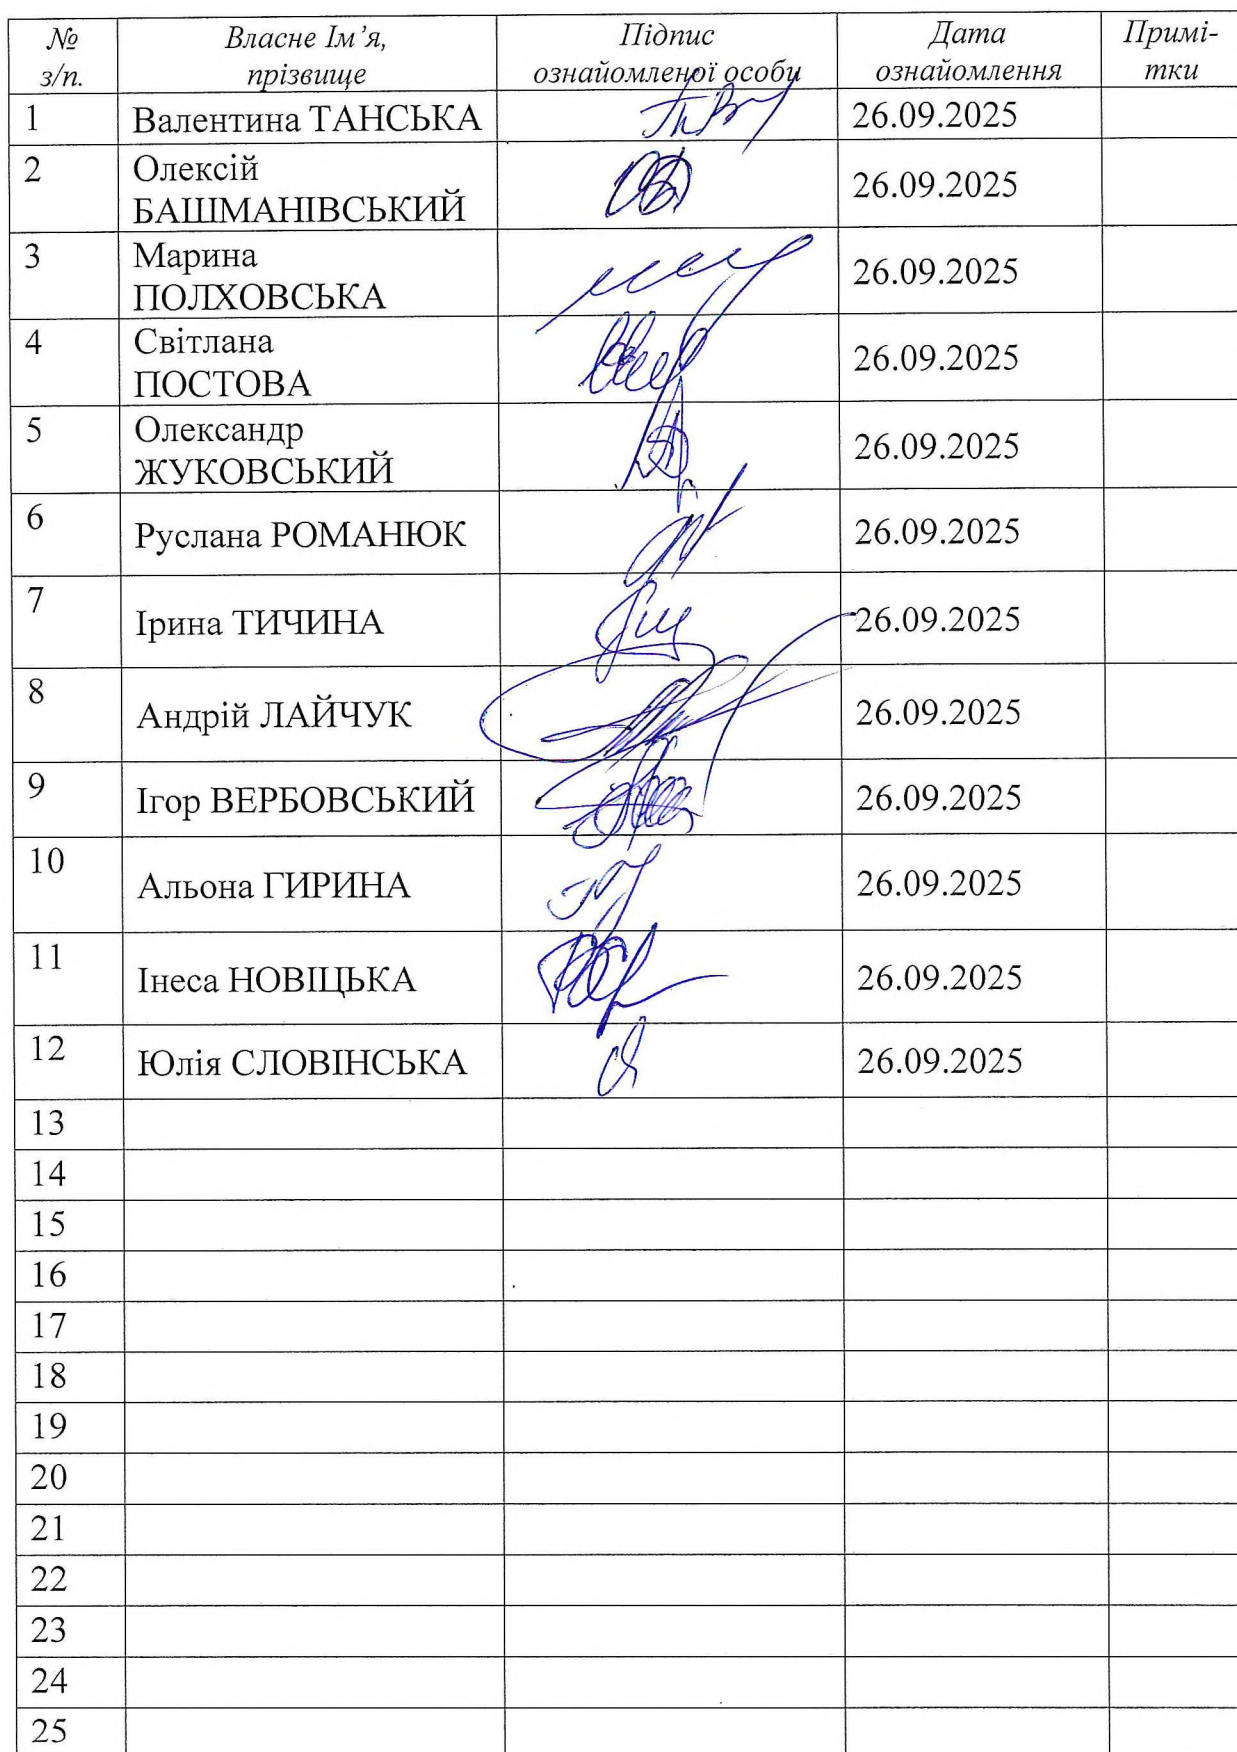 № з/п. Власне Ім’я, прізвище Підпис ознайомленої особи Дата ознайомлення Примі-тки
1 Валентина ТАНСЬКА 26.09.2025
2 Олексій БАШМАНІВСЬКИЙ 26.09.2025
3 Марина ПОЛХОВСЬКА 26.09.2025
4 Світлана ПОСТОВА 26.09.2025
5 Олександр ЖУКОВСЬКИЙ 26.09.2025
6 Руслана РОМАНЮК 26.09.2025
7 Ірина ТИЧИНА 26.09.2025
8 Андрій ЛАЙЧУК 26.09.2025
9 Ігор ВЕРБОВСЬКИЙ 26.09.2025
10 Альона ГИРИНА 26.09.2025
11 Інеса НОВІЦЬКА 26.09.2025
12 Юлія СЛОВІНСЬКА 26.09.2025
13
14
15
16
17
18
19
20
21
22
23
24
25